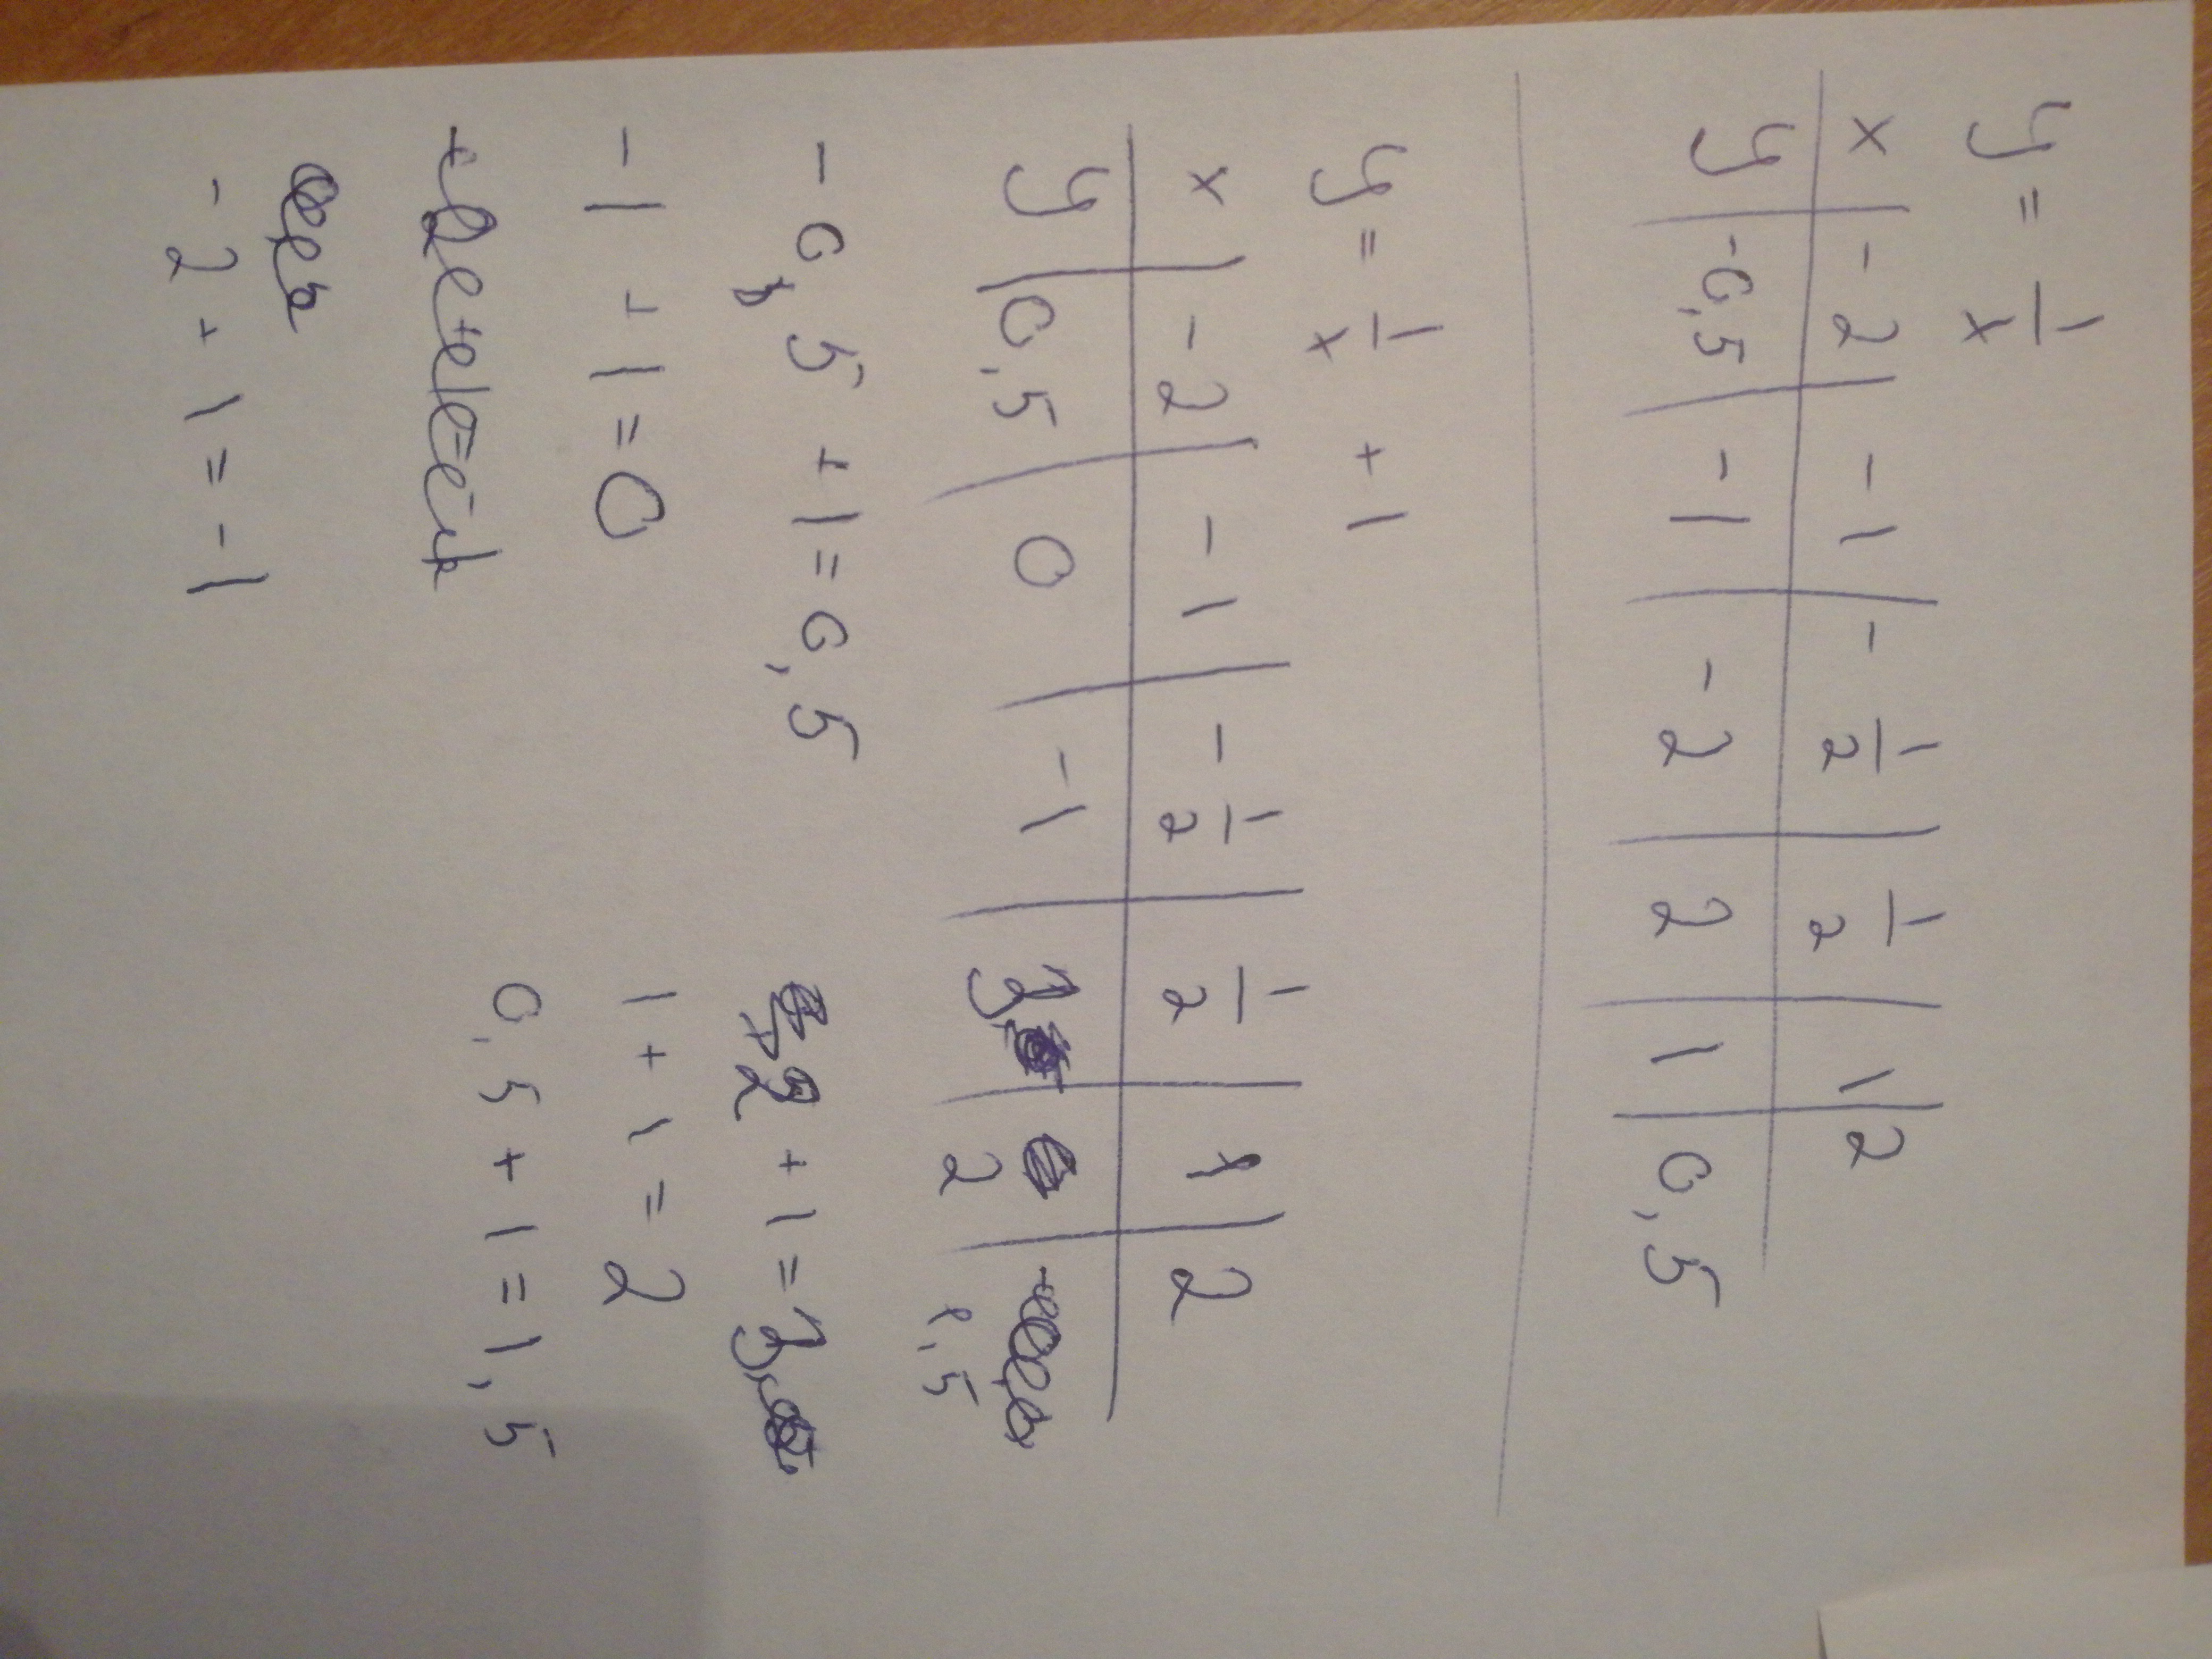 y = 1/x
x | -2 | -1 | -1/2 | 1/2 | 1 | 2
y | -0,5 | -1 | -2 | 2 | 1 | 0,5
y = 1/x + 1
x | -2 | -1 | -1/2 | 1/2 | 1 | 2
y | 0,5 | 0 | -1 | 3 | 2 | 1,5
-0,5 + 1 = 0,5
2 + 1 = 3
-1 + 1 = 0
1 + 1 = 2
0,5 + 1 = 1,5
-2 + 1 = -1